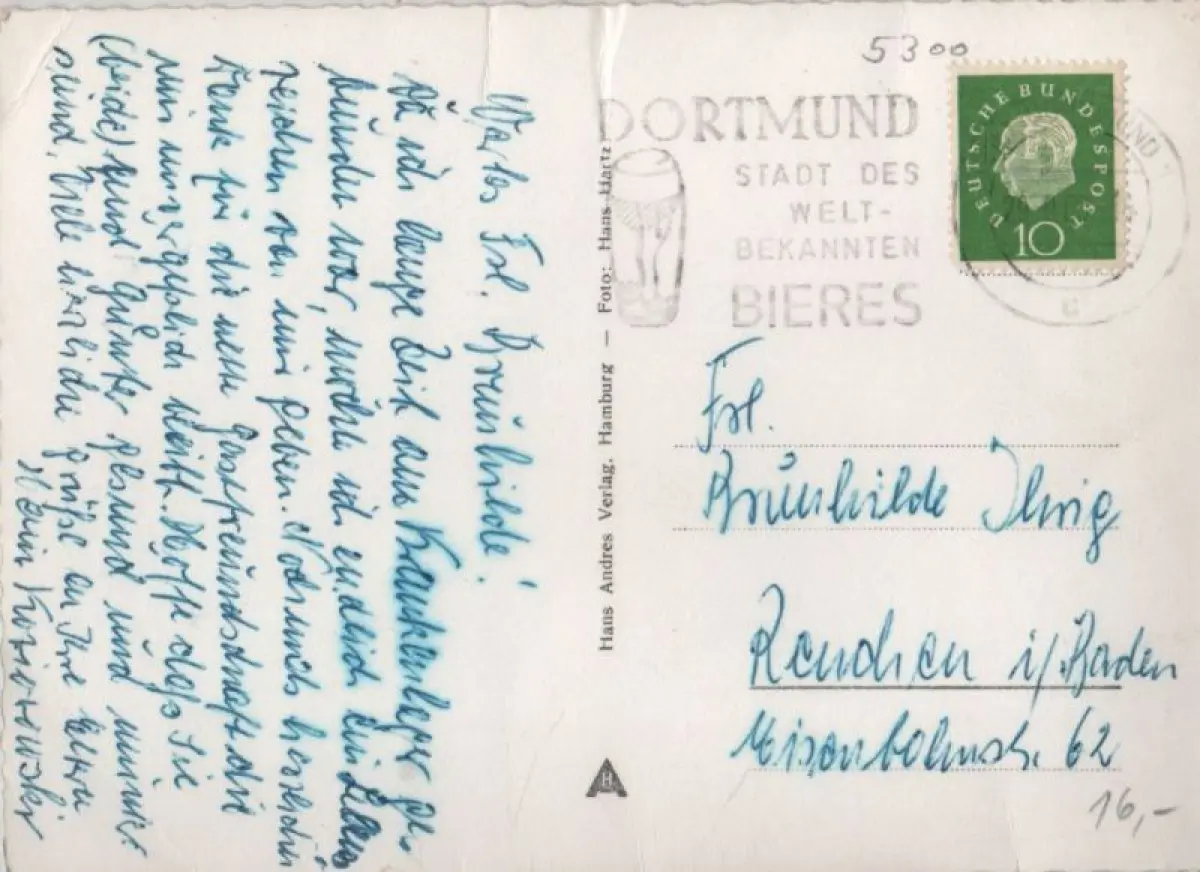 Wertes Frl. Brunhilde!
Da ich lange Zeit am Krankenlager ge-
bunden war, möchte ich endlich ein Lebens
zeichen von mir geben. Nochmals herzlichen
Dank für die nette Gastfreundschaft die
mir unvergeßlich bleibt. Hoffe daß Sie
(beide) und Günter gesund und munter
sind. Viele herzliche Grüße an Ihre Eltern
Hans Andres Verlag, Hamburg — Foto: Hans Hartz
5300
DORTMUND
STADT DES
WELT-
BEKANNTEN
BIERES
DEUTSCHE BUNDESPOST
10
Frl.
Brunhilde Ihrig
Renchen i/Baden
Eisenbahnstr. 62
16,-
H